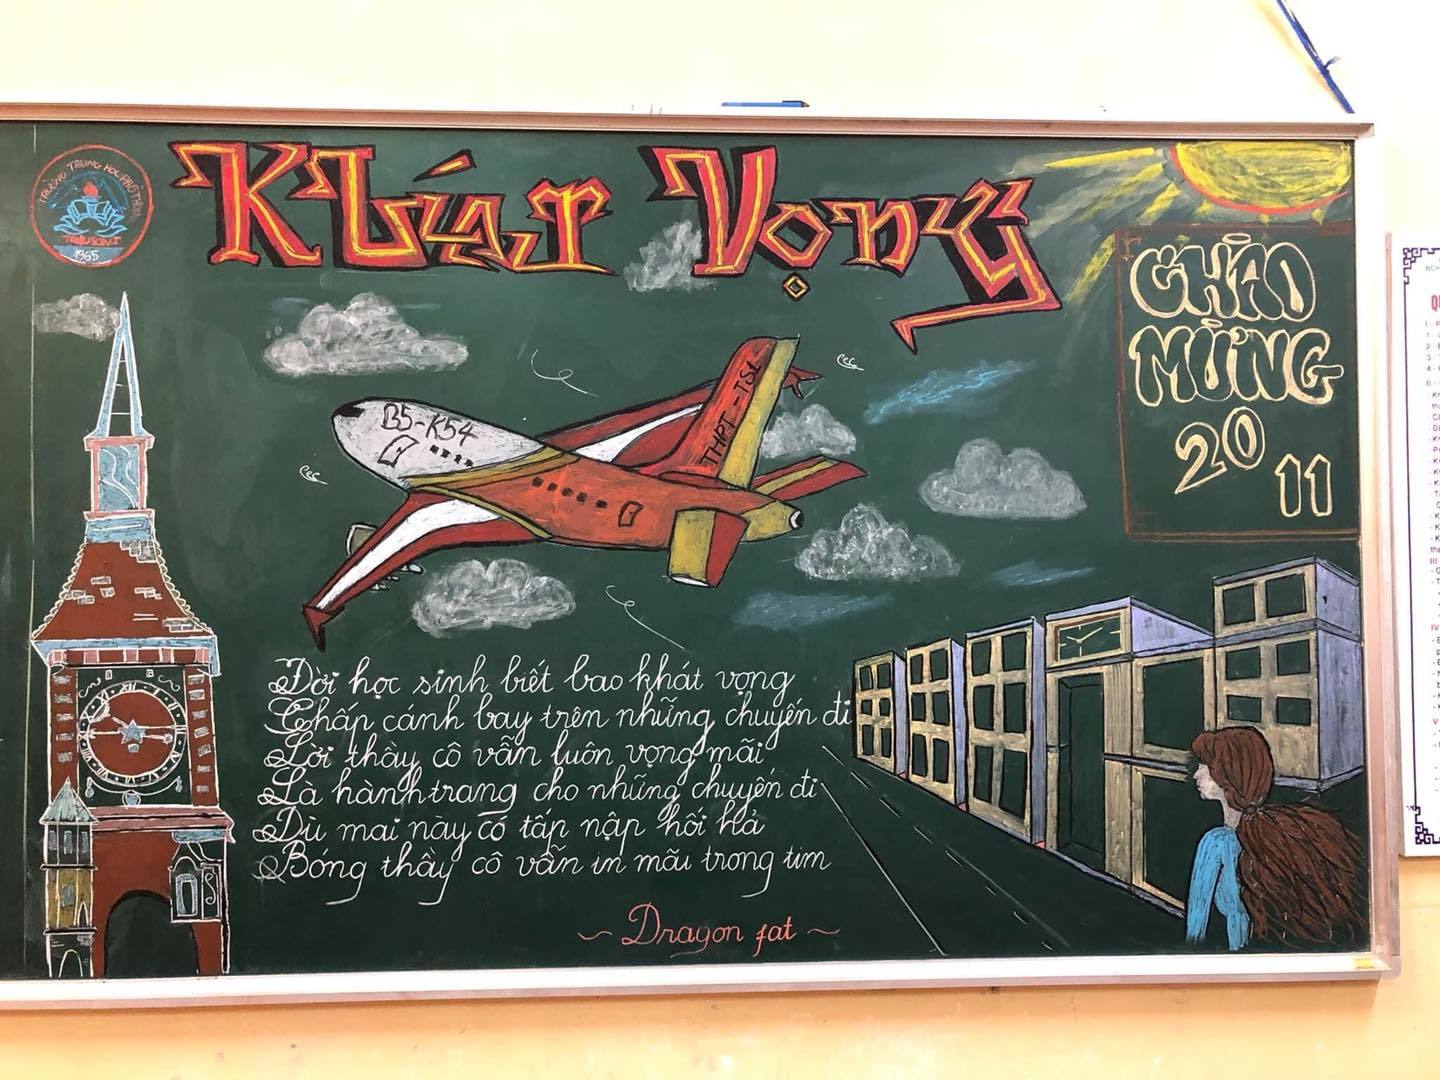 TRƯỜNG TRUNG HỌC PHỔ THÔNG
TRIỆU SƠN I
1965
Khát Vọng
CHÀO
MỪNG
20
11
B5-K54
THPT-TS1
Đời học sinh biết bao khát vọng
Chấp cánh bay trên những chuyến đi
Lời thầy cô vẫn luôn vọng mãi
Là hành trang cho những chuyến đi
Dù mai này có tấp nập hối hả
Bóng thầy cô vẫn in mãi trong tim
~ Dragon fat ~